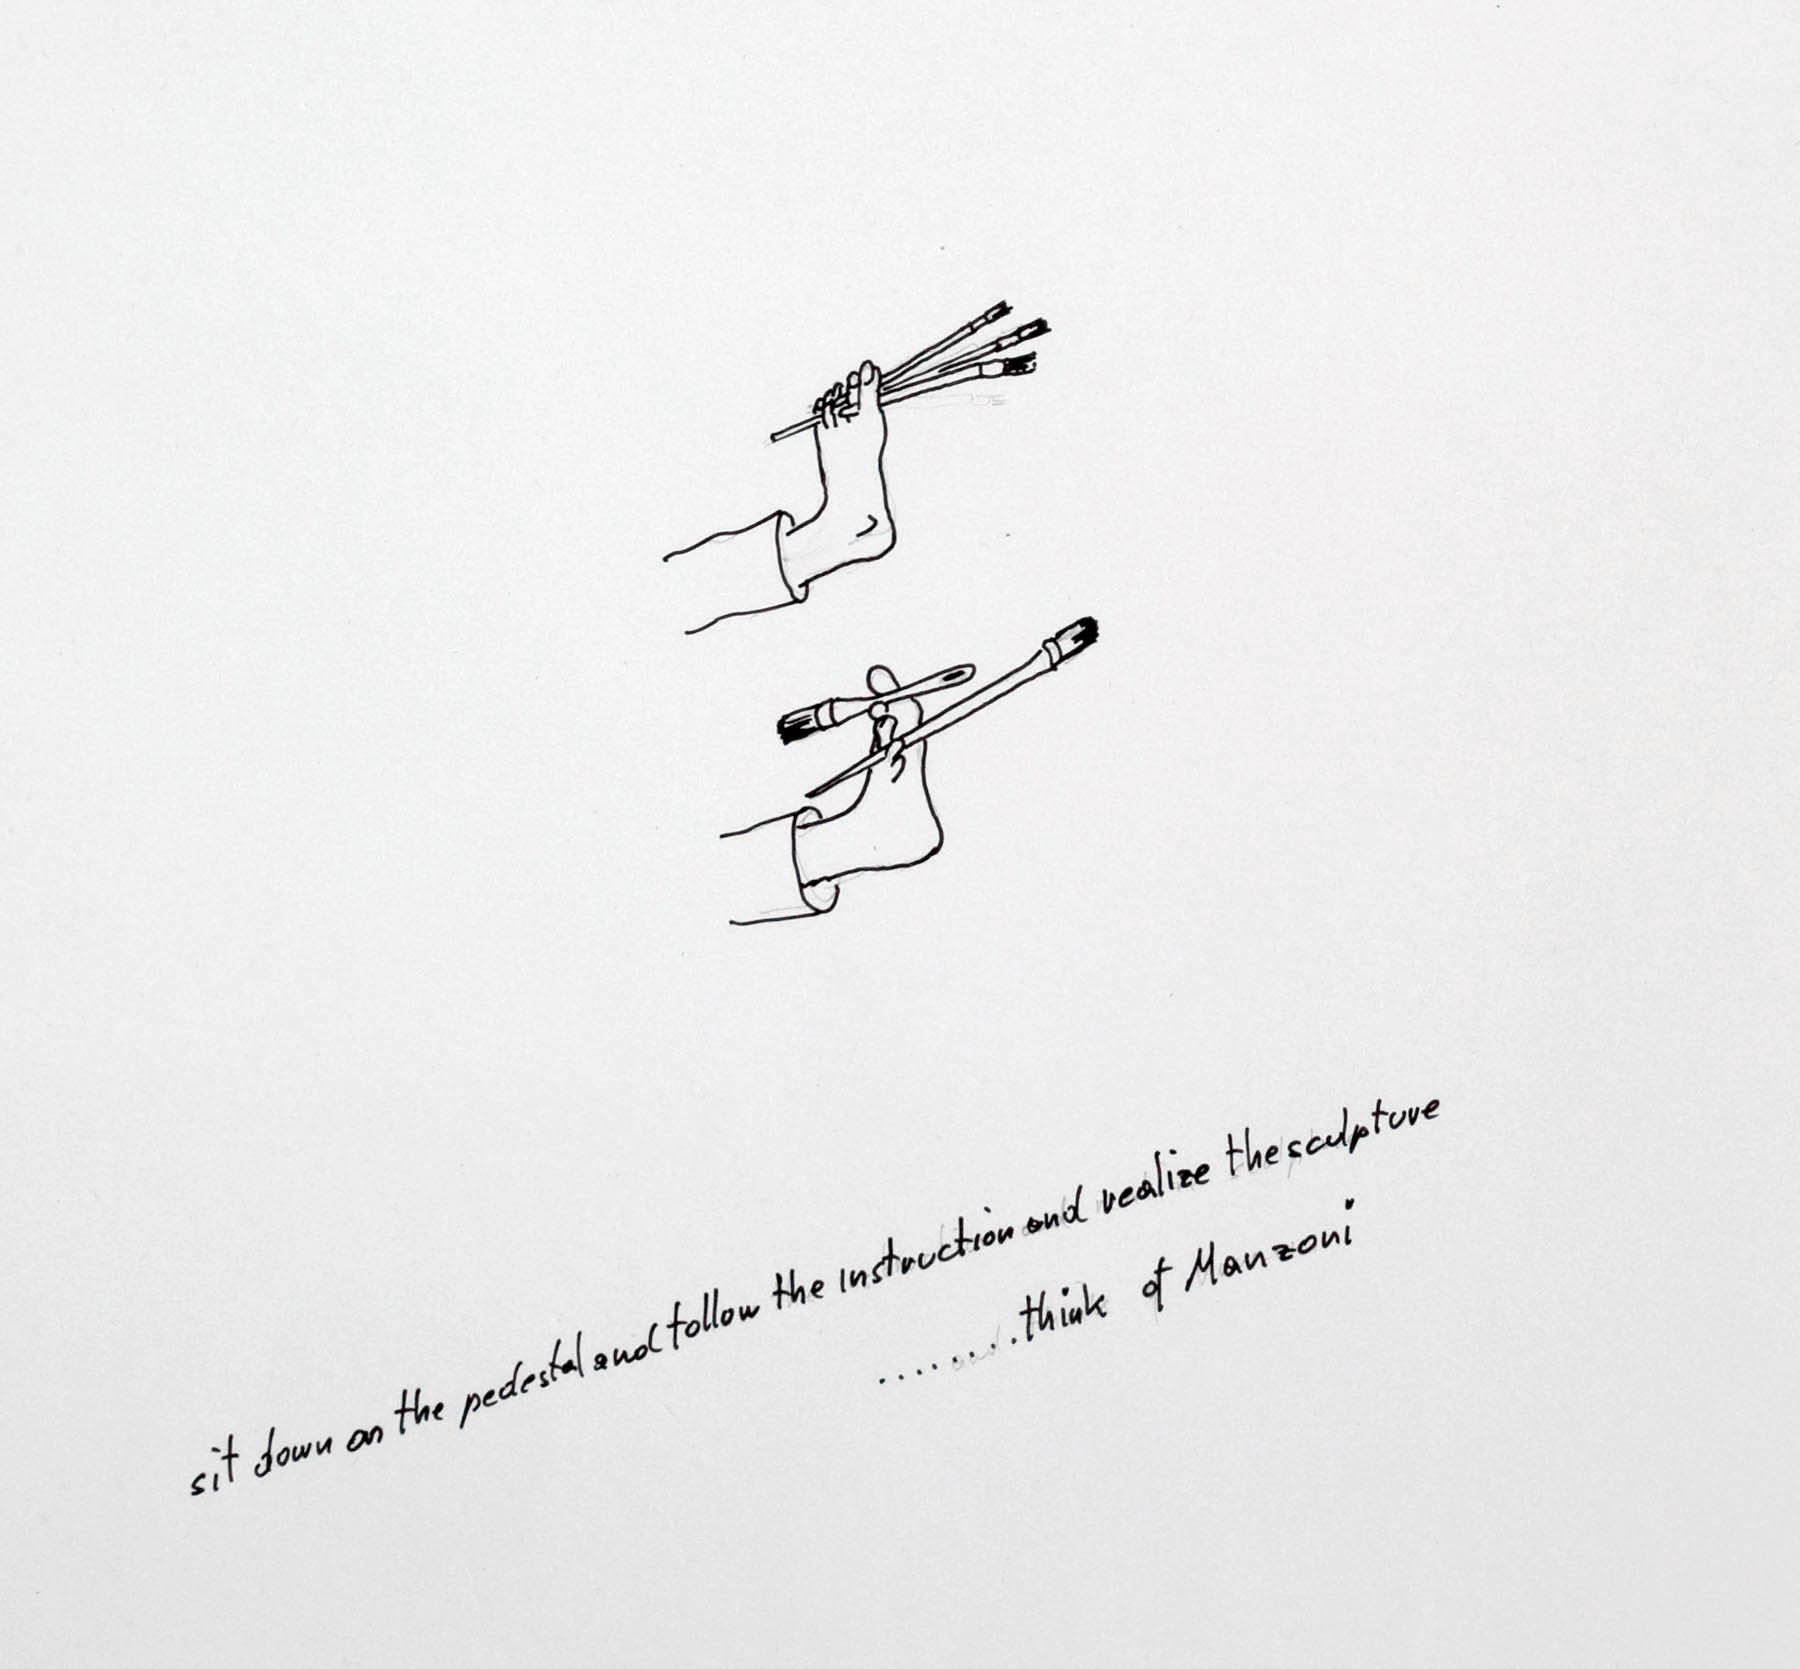 sit down on the pedestal and follow the instruction and realize the sculpture
........think of Manzoni